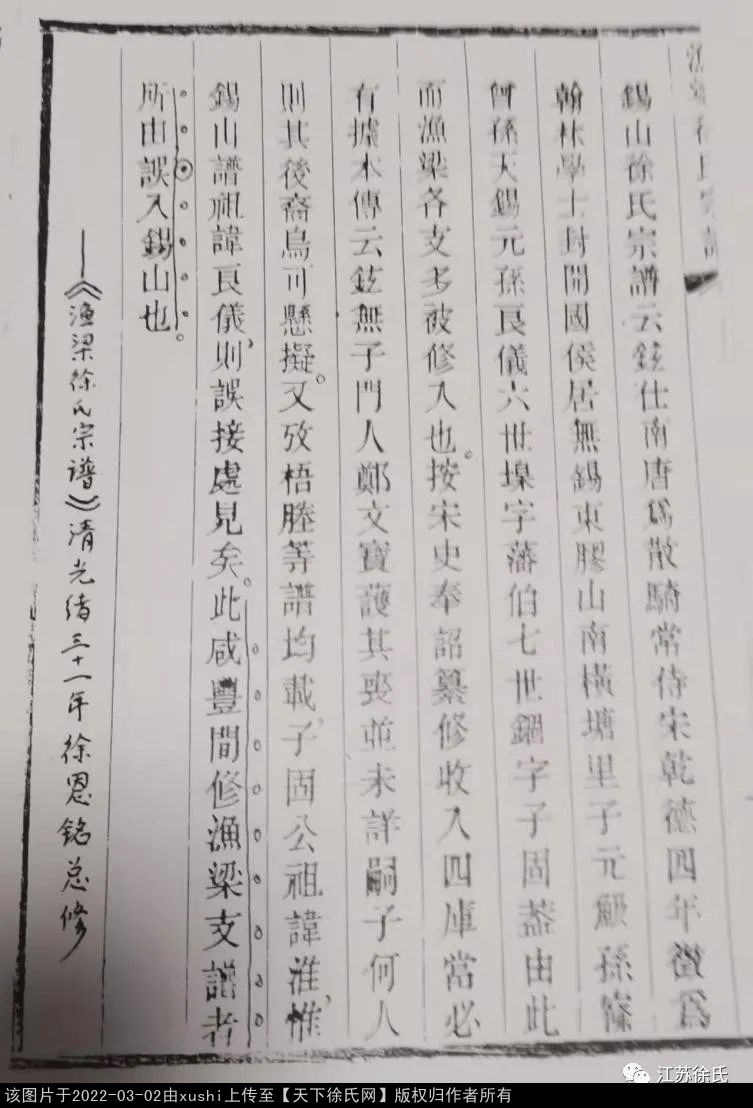 錫山徐氏宗譜云鉉仕南唐爲散騎常侍宋乾德四年徵爲
翰林學士封開國侯居無錫東膠山南橫塘里子元孫
曾孫天錫元孫良儀六世堁字藩伯七世錮字子固葢由此
而漁梁各支多被修入也。按宋史奉詔纂修收入四庫當必
有據本傳云鉉無子門人鄭文寶護其喪並未詳嗣子何人
則其後裔烏可懸擬。又攷梧塍等譜均載子固公祖諱淮惟
錫山譜祖諱良儀則誤接處見矣。此咸豐間修漁梁支譜者
所由誤入錫山也。
——《漁梁徐氏宗谱》清光绪三十一年徐恩铭总修
江苏徐氏
该图片于2022-03-02由xushi上传至【天下徐氏网】版权归作者所有